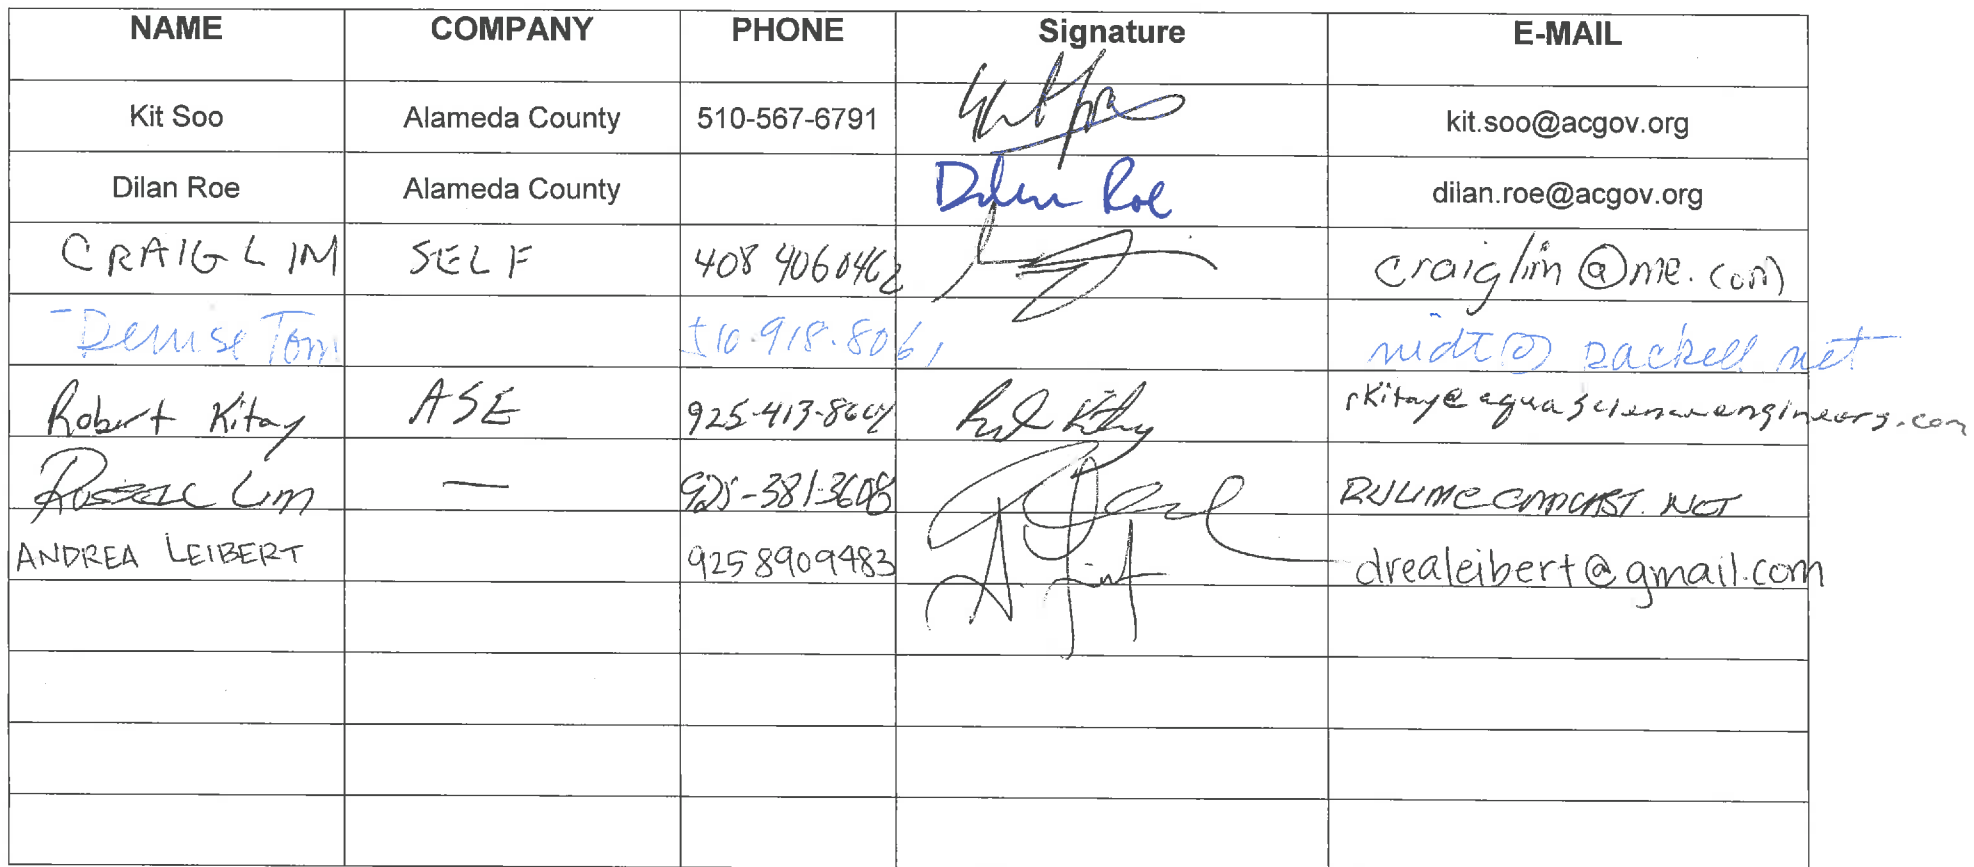 NAME COMPANY PHONE Signature E-MAIL
Kit Soo Alameda County 510-567-6791 kit.soo@acgov.org
Dilan Roe Alameda County Dilan Roe dilan.roe@acgov.org
CRAIG LIM SELF 408 4060462 craiglim@me.com
Denise Tom 510.918.8061 midt@ zackell net
Robert Kitay ASE 925-413- rkitay@aquascienceengineers.com
Lim — 925-381-3608 RVLIM@COMCAST.NET
ANDREA LEIBERT 925 8909483 drealeibert@gmail.com